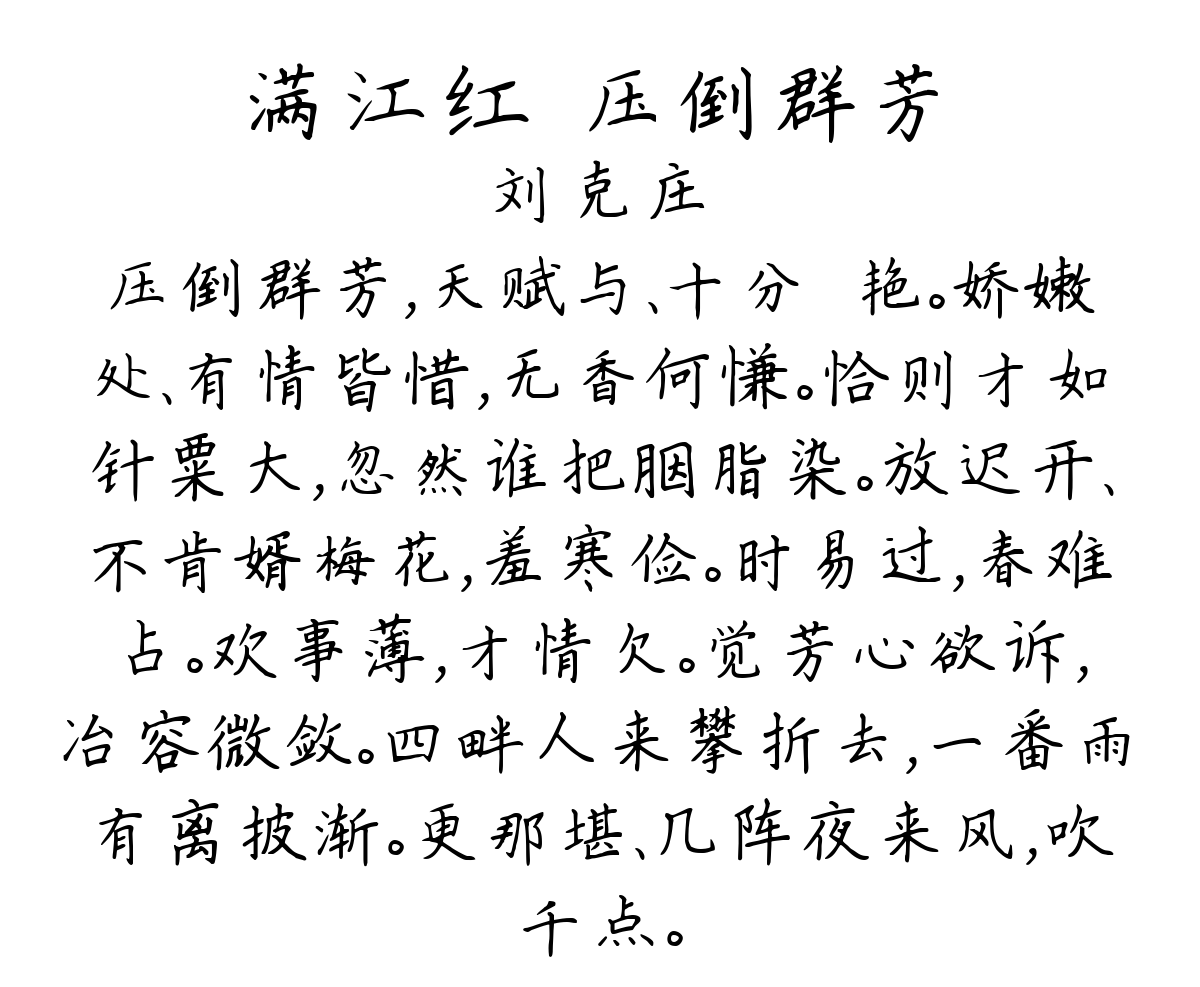 满江红 压倒群芳
刘克庄
压倒群芳,天赋与、十分 艳。娇嫩
处、有情皆惜,无香何慊。恰则才如
针粟大,忽然谁把胭脂染。放迟开、
不肯婿梅花,羞寒俭。时易过,春难
占。欢事薄,才情欠。觉芳心欲诉,
冶容微敛。四畔人来攀折去,一番雨
有离披渐。更那堪、几阵夜来风,吹
千点。